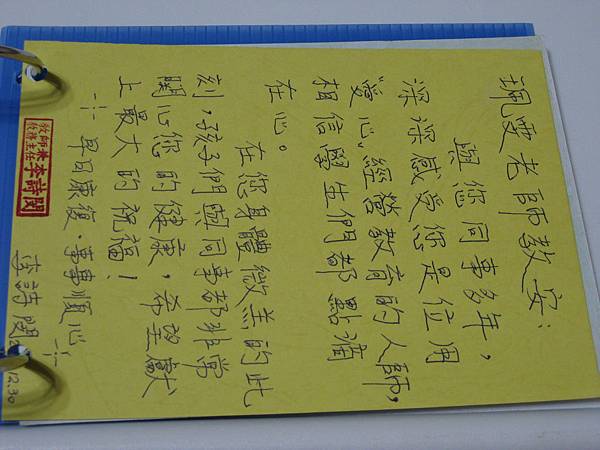 珮雯老師教安：
與您同事多年，
深深感受您是位用
"愛心"經營教育的人師，
相信學生們都點滴
在心。
在您身體微恙的此
刻，孩子們與同事都非常
關心您的健康，希望獻
上最大的祝福！
早日康復．事事順心
教師兼
教務主任
李詩閔
李詩閔
12.30